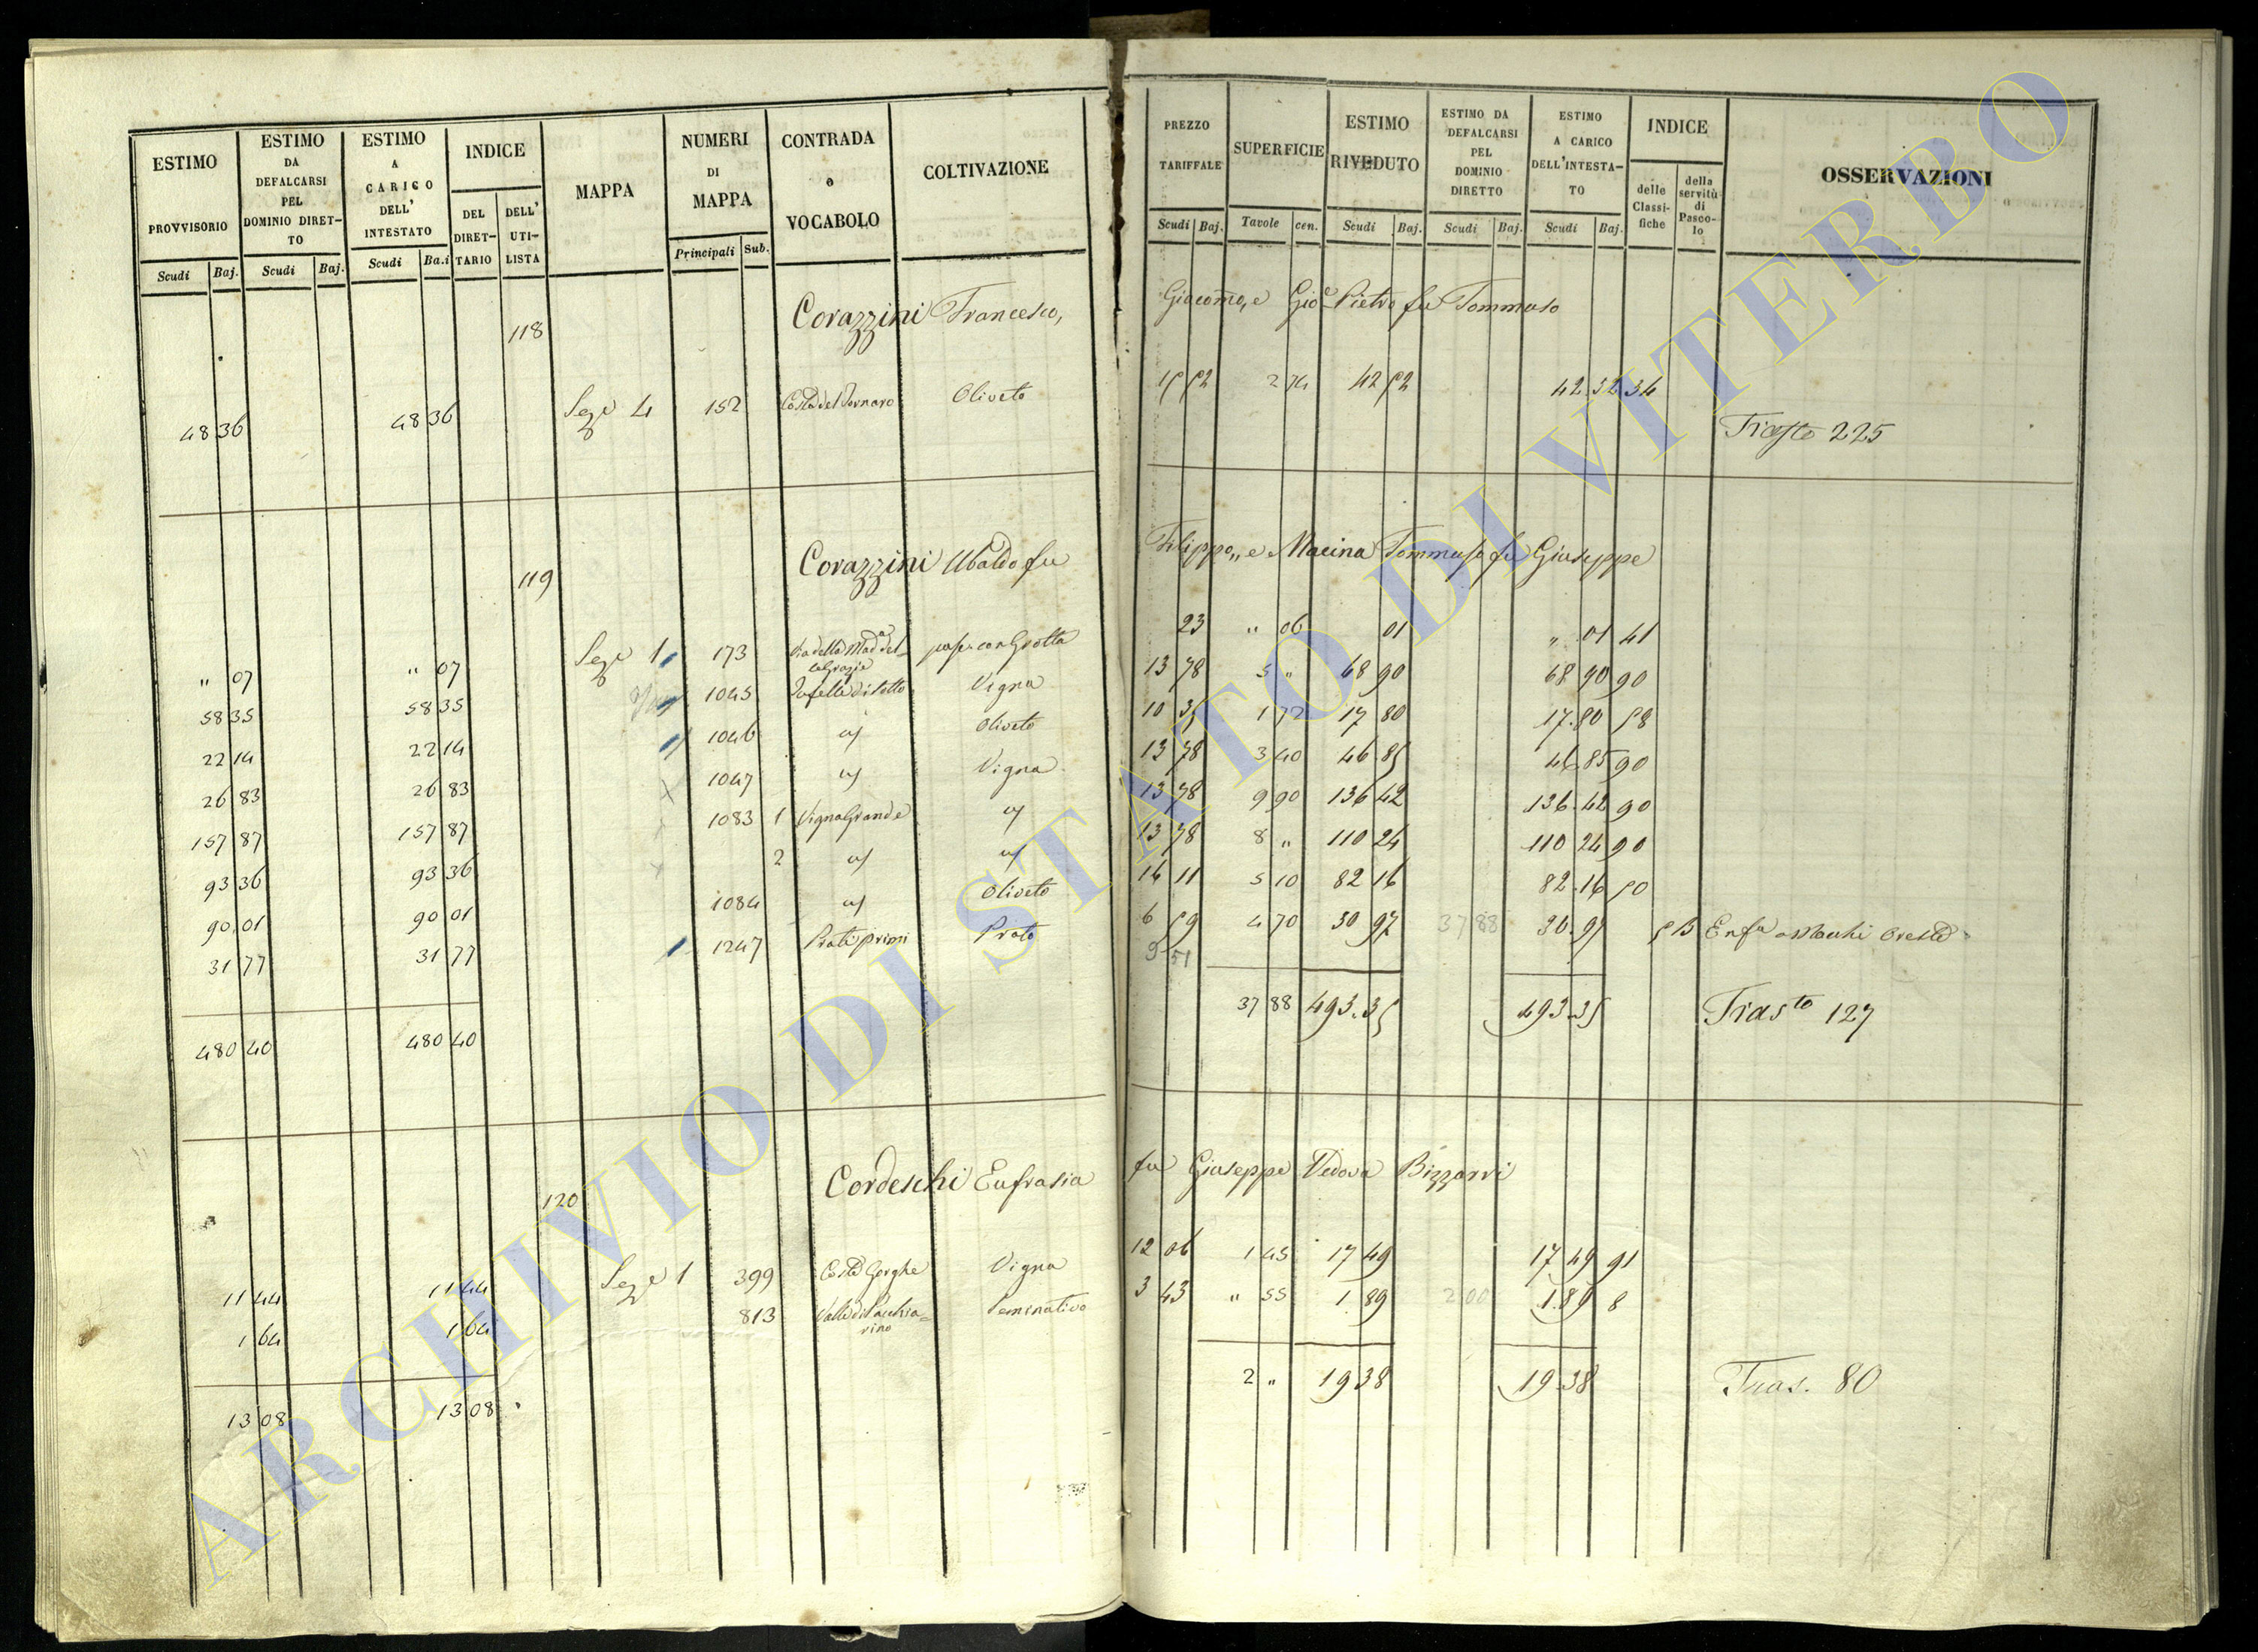 ESTIMO PROVVISORIO
ESTIMO DA DEFALCARSI PEL DOMINIO DIRET-TO
ESTIMO A CARICO DELL' INTESTATO
INDICE
DEL DIRET-TARIO
DELL' UTI-LISTA
MAPPA
NUMERI DI MAPPA
CONTRADA o VOCABOLO
COLTIVAZIONE
Scudi Baj. Scudi Baj. Scudi Ba.i Principali Sub.
118 Corazzini Francesco,
48 36 48 36 Sez.e 4 152 Costa del Fornaro Oliveto
119 Corazzini Ubaldo fu
" 07 " 07 Sez.e 1 173 Via della Mad.a del-le Grazie con Grotta
58 35 58 35 1045 di Sotto Vigna
22 14 22 14 1046 Oliveto
26 83 26 83 1047 Vigna
157 87 157 87 1083 1 Vigna Grande
93 36 93 36 2
90 01 90 01 1084 Oliveto
31 77 31 77 1247 Prati primi Prato
480 40 480 40
120 Cordeschi Eufrasia
11 44 11 44 Sez.e 1 399 Vigna
1 64 1 64 813 Seminativo
13 08 13 08
PREZZO TARIFFALE
SUPERFICIE
ESTIMO RIVEDUTO
ESTIMO DA DEFALCARSI PEL DOMINIO DIRETTO
ESTIMO A CARICO DELL'INTESTA-TO
INDICE
delle Classi-fiche
della servitù di Pasco-lo
OSSERVAZIONI
Scudi Baj. Tavole cen. Scudi Baj. Scudi Baj. Scudi Baj.
Giacomo, e Gio Pietro fu Tommaso
15 52 2 74 42 52 42.32 34
Trasto 225
Filippo,, e Macina Tommaso fu Giuseppe
23 " 06 01 " 01 41
13 78 5 " 68 90 68 90 90
10 35 1 72 17 80 17.80 58
13 78 3 40 46.85 46.85 90
13 78 9 90 136 42 136.42 90
13 78 8 " 110 24 110 24 90
16 11 5 10 82 16 82.16 50
6 59 4 70 30 97 37 88 30.97
9 51
37 88 493.35 493.35 Trasto 127
fu Giuseppe Vedova Bizzarri
12 06 1 45 17 49 17 49 91
3 43 " 55 1.89 2 00 1.89 8
2 " 19 38 19.38 Tras. 80
ARCHIVIO DI STATO DI VITERBO